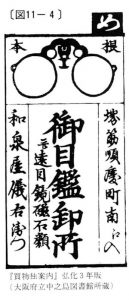 〔図11-4〕
め
本 根
堺筋順慶町南江入
御目鑑卸所
遠目鏡磁石類
和泉屋儀右衛門
『買物独案内』弘化3年版
(大阪府立中之島図書館所蔵)